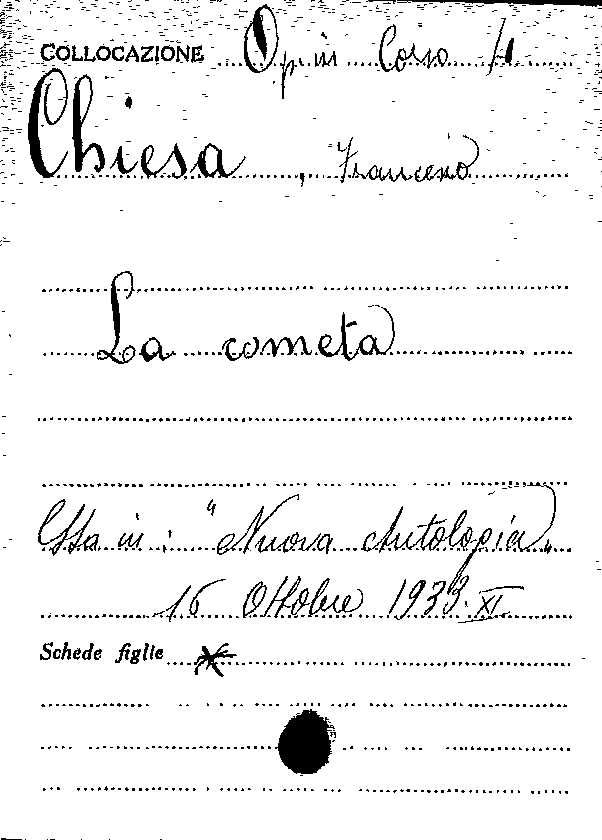 COLLOCAZIONE Op. in Corso H
Chiesa, Francesco
La cometa
Sta in: "Nuova Antologia"
16 Ottobre 1933. XI
Schede figlie *